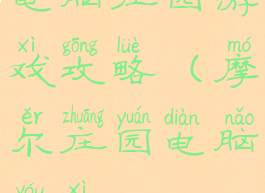 电脑庄园游
xì gōng lüè mó
戏攻略（摩
ěr zhuāng yuán diàn nǎo
尔庄园电脑
yóu xì